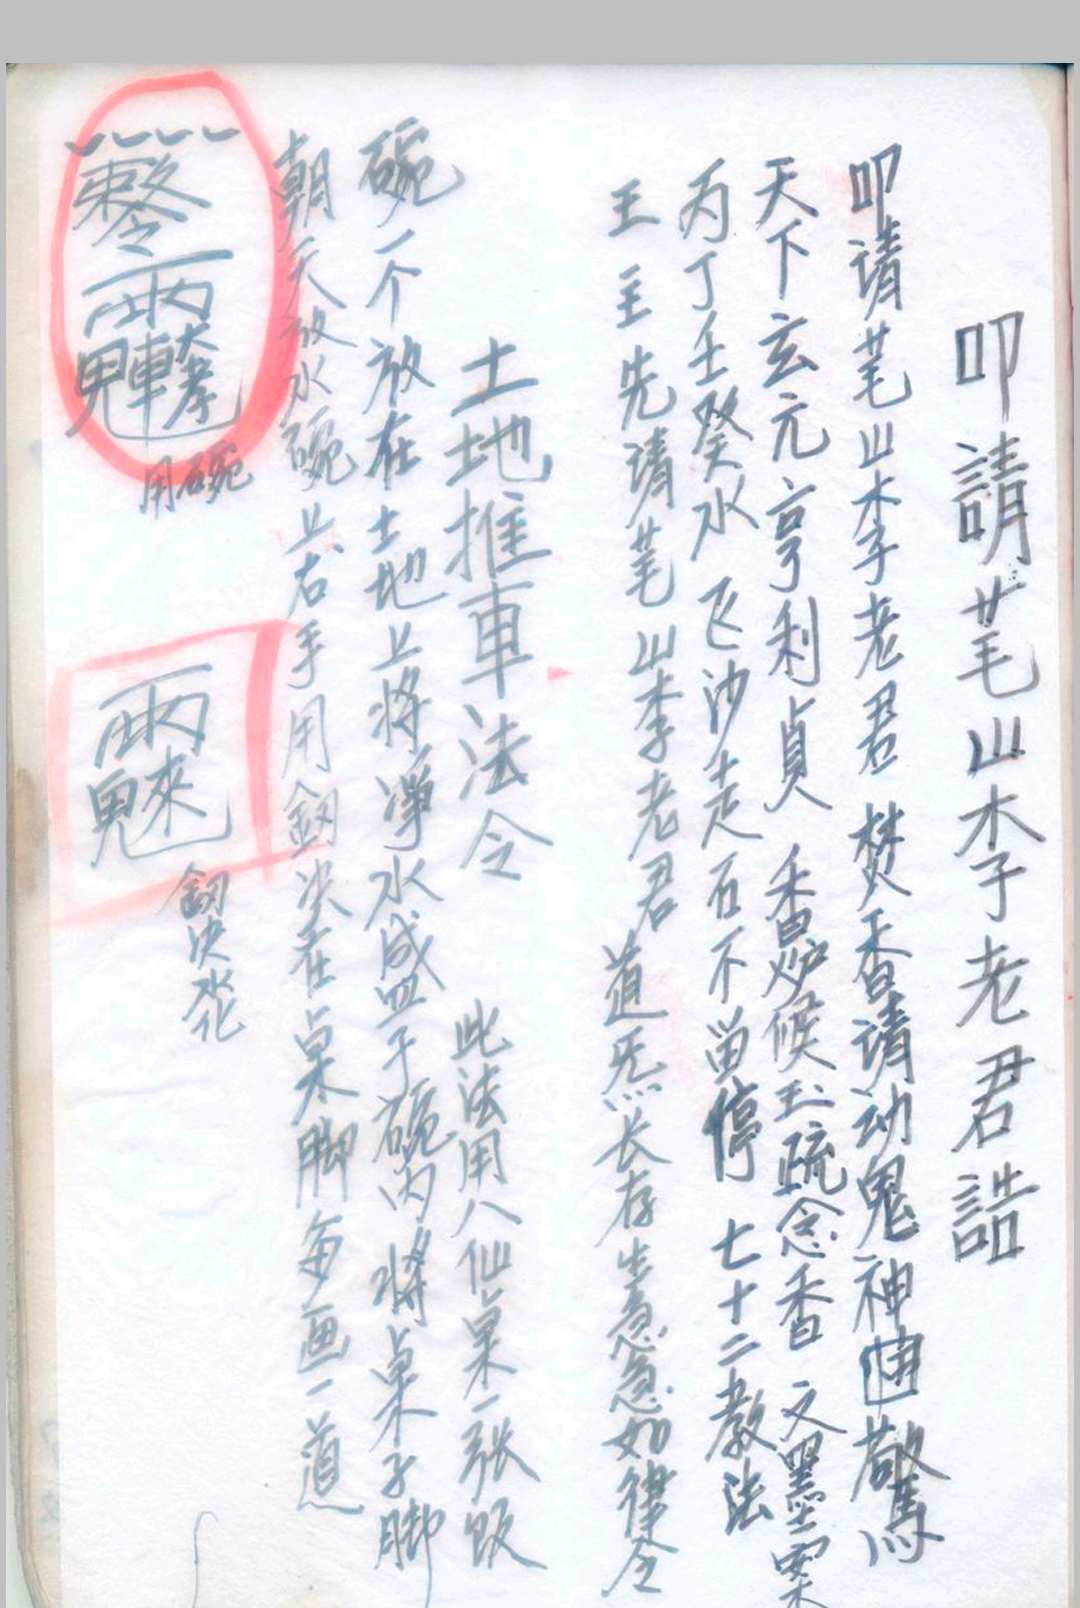 叩請茅山李老君誥
叩请茅山李老君 焚香请动鬼神驚
天下玄元亨利貞 香炉候玉疏念香 文墨案
丙丁壬癸水 飞沙走石不留停 七十二教法
王主先请茅山李老君 道炁长存生急急如律令
土地推車法令 此法用八仙桌一张饭
碗一个放在土地上将净水盛于碗内将桌子脚
朝天放水碗上右手用剑决在桌脚每画一道
用碗
剑决水化